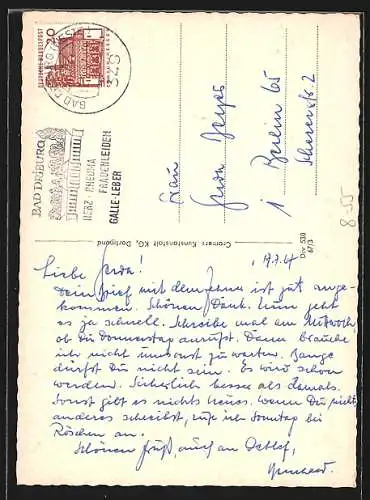 DEUTSCHE BUNDESPOST 20
BAD DRIBURG (WESTF)
BAD DRIBURG
HERZ · RHEUMA
FRAUENLEIDEN
GALLE-LEBER
Frau
Berlin 65
Cramers Kunstanstalt KG, Dortmund
Div 538
67/3
8-55
Liebe Gerda!
Dein Brief mit dem ist gut ange-
kommen. Schönen Dank. Nun geht
es ja schnell. Schreibe mal am Mittwoch,
ob Du Donnerstag anrufst. Dann brauche
ich nicht umsonst zu warten. Bange
dürfst Du nicht sein. Es wird schon
werden. Sicherlich besser als damals.
Sonst gibt es nichts neues. Wenn Du nichts
anderes schreibst, rufe ich Sonntag bei
Röschen an.
Schönen Gruß, auch an Detlef,